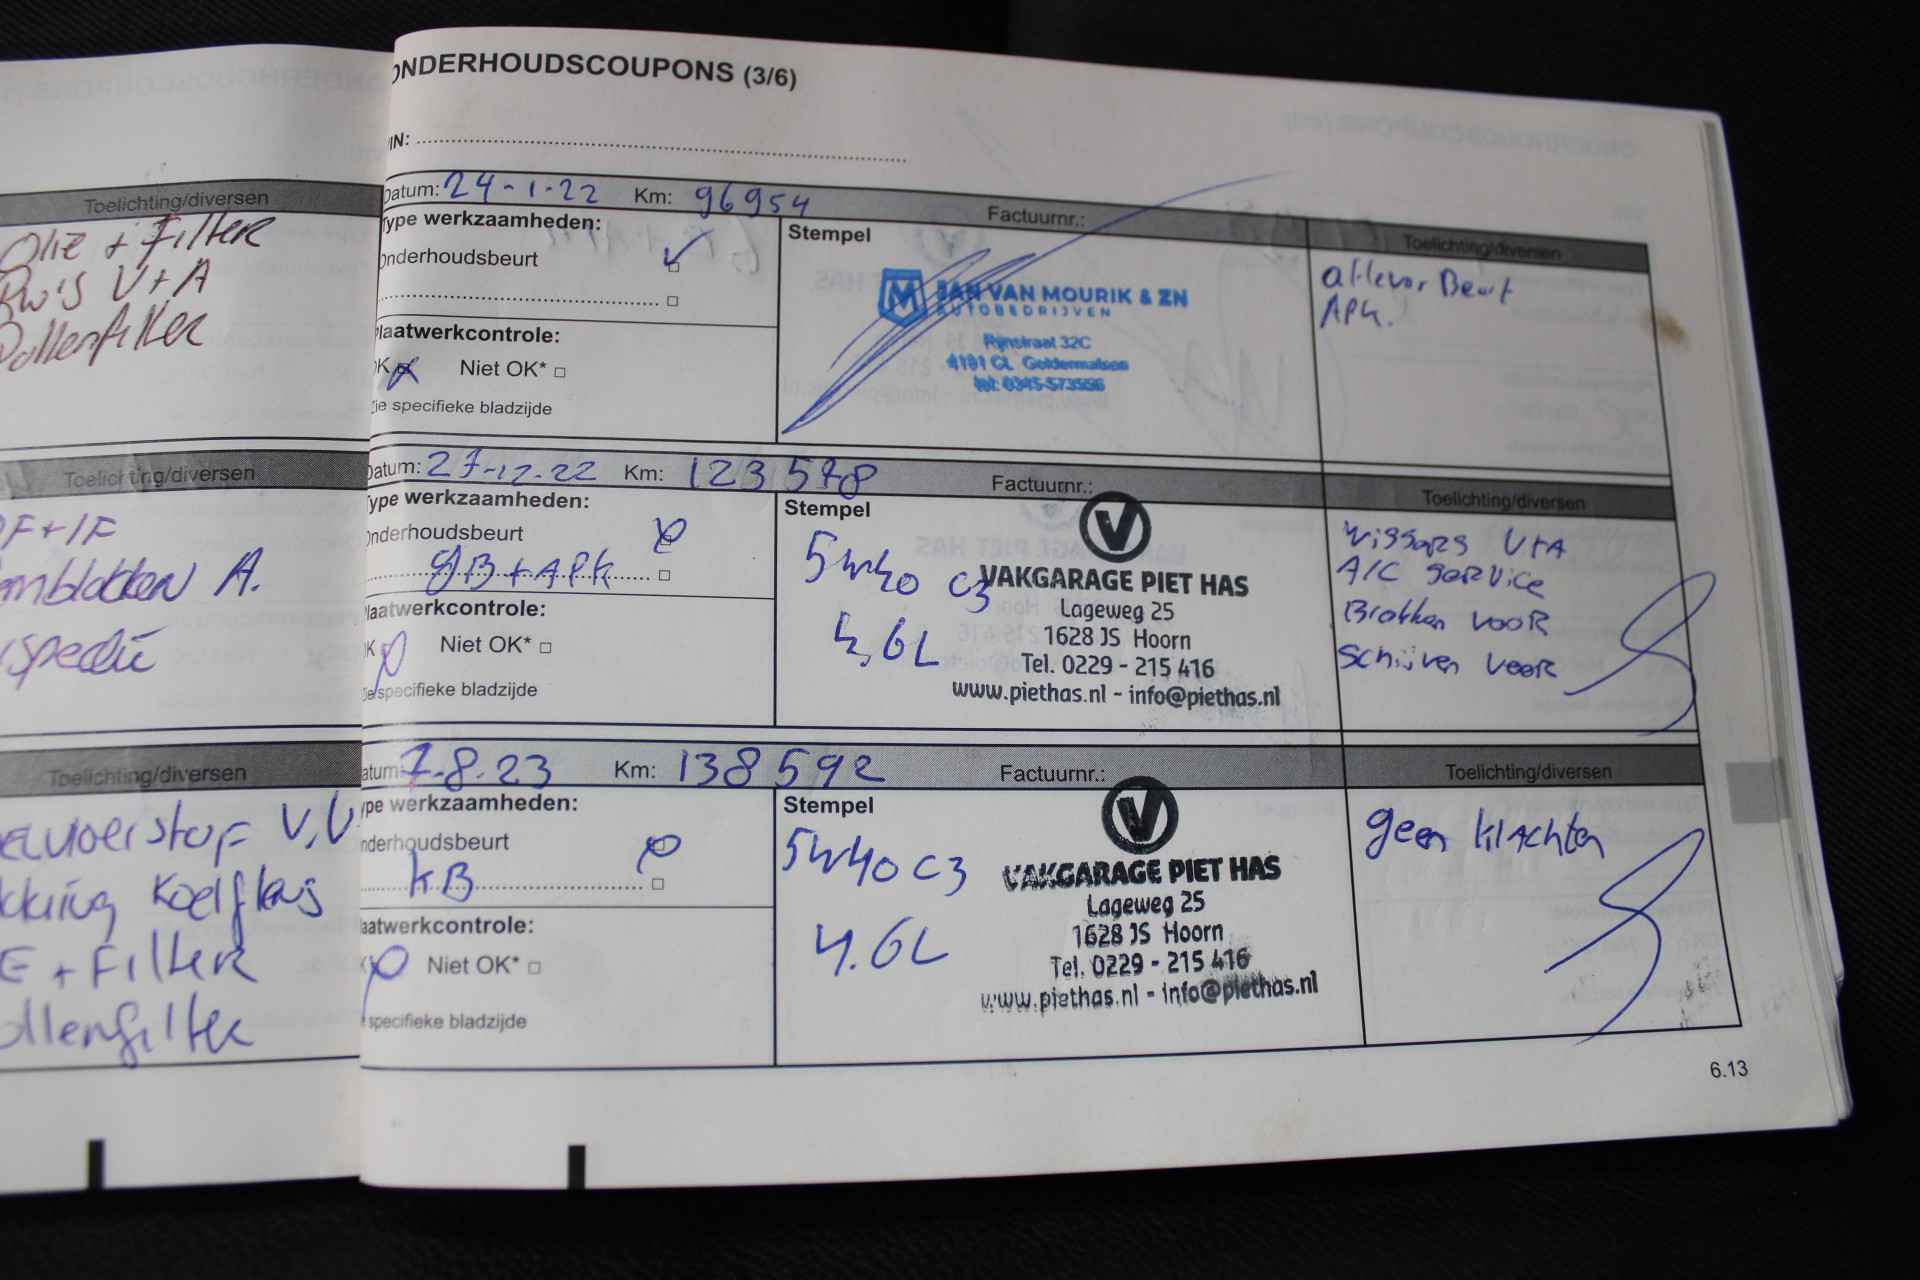 Toelichting/diversen
Olie + Filter
Rw's V+A
Pollenfilter
Toelichting/diversen
F+IF
A.
Toelichting/diversen
V,V
E + Filter
ollenfilter
ONDERHOUDSCOUPONS (3/6)
IN:
Datum: 24-1-22 Km: 96954 Factuurnr.: Toelichting/diversen
Type werkzaamheden:
Onderhoudsbeurt
Plaatwerkcontrole:
OK Niet OK*
Zie specifieke bladzijde
Stempel
JAN VAN MOURIK & ZN
AUTOBEDRIJVEN
Rijnstraat 32C
4191 CL Geldermalsen
tel: 0345-573556
aflever Beurt
APK.
Datum: 27-12-22 Km: 123578 Factuurnr.: Toelichting/diversen
Type werkzaamheden:
Onderhoudsbeurt
GB + APK
laatwerkcontrole:
OK Niet OK*
Zie specifieke bladzijde
Stempel
5W40 C3
4,6L
VAKGARAGE PIET HAS
Lageweg 25
1628 JS Hoorn
Tel. 0229 - 215 416
www.piethas.nl - info@piethas.nl
Wissers V+A
A/C Service
Blokken VOOR
Schijven VOOR
Datum: 7-8-23 Km: 138592 Factuurnr.: Toelichting/diversen
ype werkzaamheden:
nderhoudsbeurt
KB
aatwerkcontrole:
Niet OK*
specifieke bladzijde
Stempel
5W40 C3
4.6L
VAKGARAGE PIET HAS
Lageweg 25
1628 JS Hoorn
Tel. 0229 - 215 416
www.piethas.nl - info@piethas.nl
geen klachten
6.13